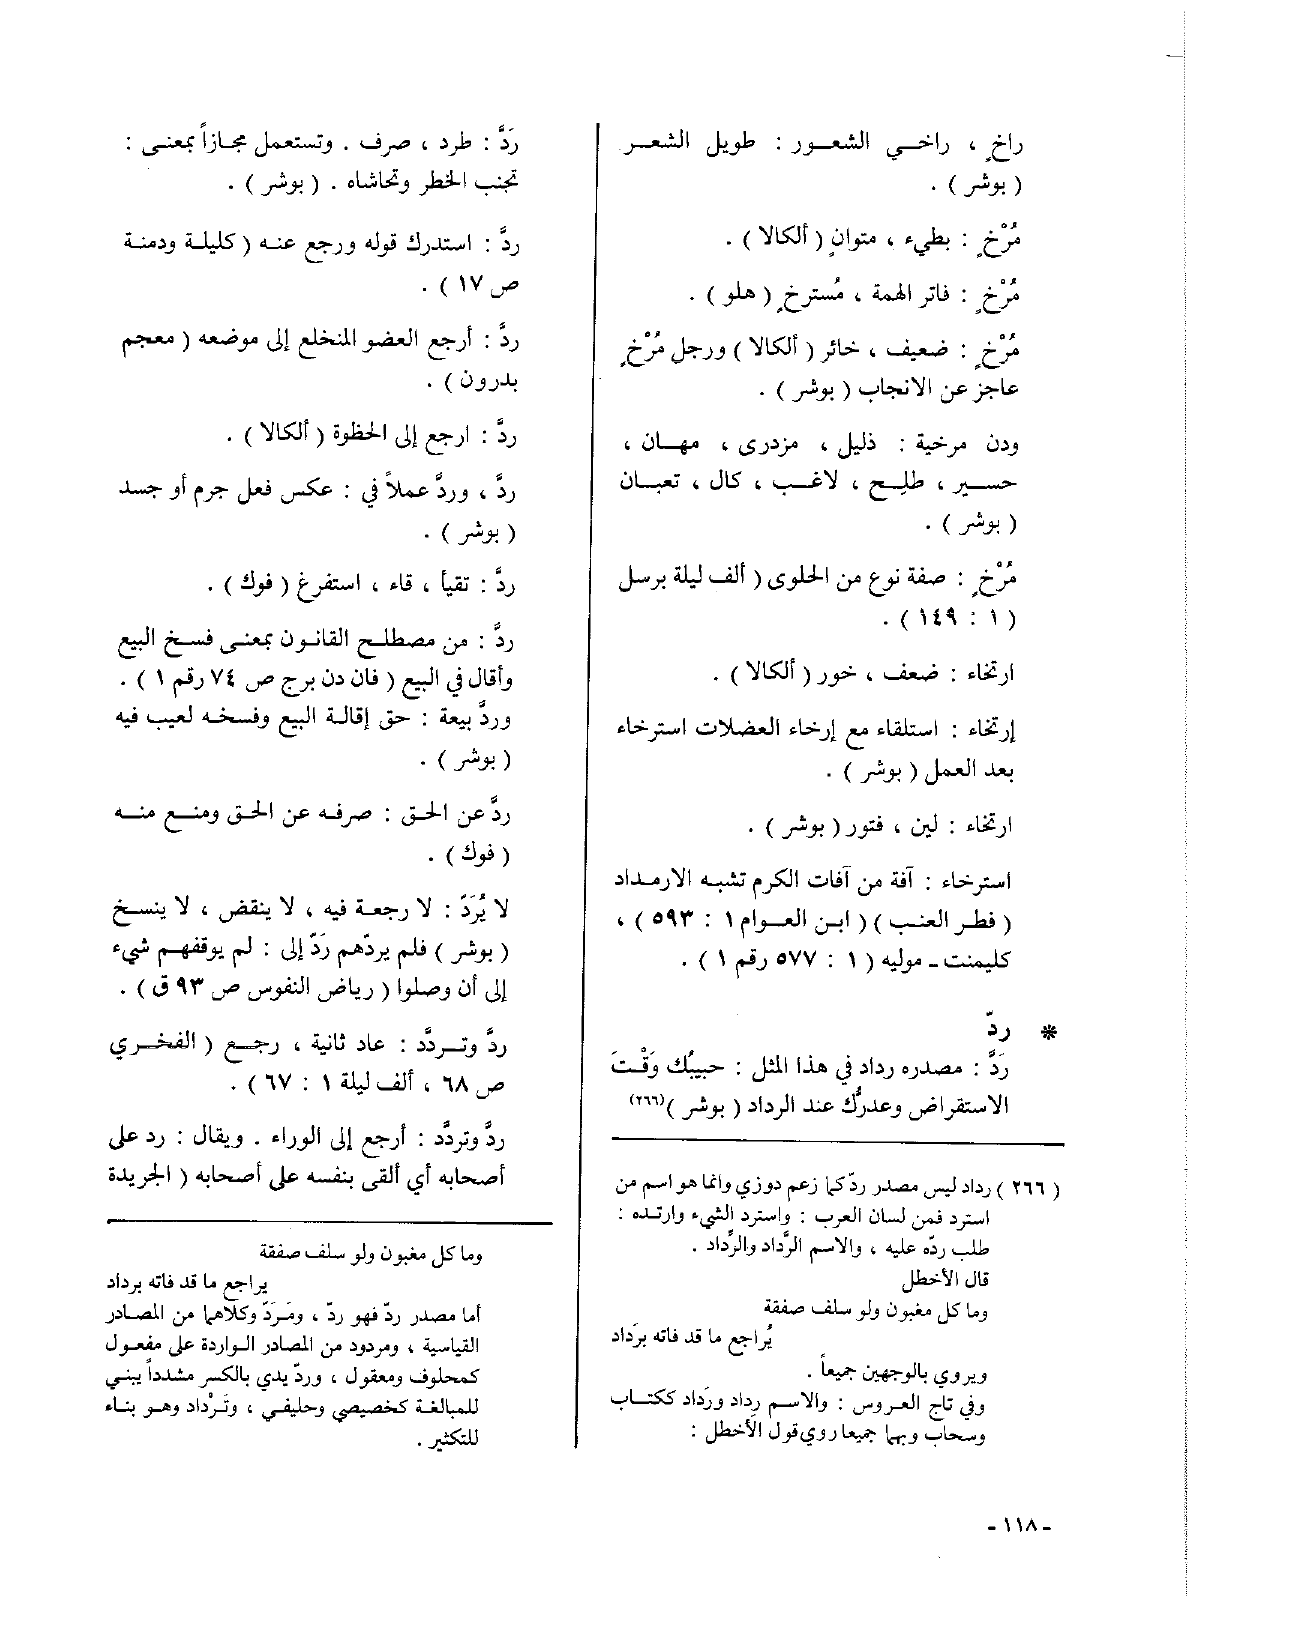 راخٍ ، راخي الشعور : طويل الشعر
( بوشر ) .
مُرْخٍ : بطيء ، متوانٍ ( ألكالا ) .
مُرْخٍ : فاتر الهمة ، مُسترخٍ ( هلو ) .
مُرْخٍ : ضعيف ، خائر ( ألكالا ) ورجل مُرْخٍ
عاجز عن الانجاب ( بوشر ) .
ودن مرخية : ذليل ، مزدرى ، مهان ،
حسير ، طلِح ، لاغب ، كال ، تعبان
( بوشر ) .
مُرْخٍ : صفة نوع من الحلوى ( ألف ليلة برسل
١ : ١٤٩ ) .
ارتخاء : ضعف ، خور ( ألكالا ) .
إرتخاء : استلقاء مع إرخاء العضلات استرخاء
بعد العمل ( بوشر ) .
ارتخاء : لين ، فتور ( بوشر ) .
استرخاء : آفة من آفات الكرم تشبه الارمداد
( فطر العنب ) ( ابن العوام ١ : ٥٩٣ ) ،
كليمنت ـ موليه ( ١ : ٥٧٧ رقم ١ ) .
* ردّ
رَدَّ : مصدره رداد في هذا المثل : حبيبُك وَقْتَ
الاستقراض وعدرُّك عند الرداد ( بوشر )(٢٦٦)
( ٢٦٦ ) رداد ليس مصدر ردّ كما زعم دوزي وانما هو اسم من
استرد فمن لسان العرب : واسترد الشيء وارتده :
طلب ردّه عليه ، والاسم الرَّداد والرِّداد .
قال الأخطل
وما كل مغبون ولو سلف صفقة
يُراجع ما قد فاته برَداد
ويروي بالوجهين جميعاً .
وفي تاج العروس : والاسم رداد ورَداد ككتاب
وسحاب وبهما جميعا روي قول الأخطل :
رَدَّ : طرد ، صرف . وتستعمل مجازاً بمعنى :
تجنب الخطر وتحاشاه . ( بوشر ) .
ردَّ : استدرك قوله ورجع عنه ( كليلة ودمنة
ص ١٧ ) .
ردَّ : أرجع العضو المنخلع إلى موضعه ( معجم
بدرون ) .
ردَّ : ارجع إلى الحظوة ( ألكالا ) .
ردَّ ، وردَّ عملاً في : عكس فعل جرم أو جسد
( بوشر ) .
ردَّ : تقيأ ، قاء ، استفرغ ( فوك ) .
ردَّ : من مصطلح القانون بمعنى فسخ البيع
وأقال في البيع ( فان دن برج ص ٧٤ رقم ١ ) .
وردَّ بيعة : حق إقالة البيع وفسخه لعيب فيه
( بوشر ) .
ردَّ عن الحق : صرفه عن الحق ومنع منه
( فوك ) .
لا يُرَدّ : لا رجعة فيه ، لا ينقض ، لا ينسخ
( بوشر ) فلم يردّهم رَدّ إلى : لم يوقفهم شيء
إلى أن وصلوا ( رياض النفوس ص ٩٣ ق ) .
ردَّ وتردَّد : عاد ثانية ، رجع ( الفخري
ص ٦٨ ، ألف ليلة ١ : ٦٧ ) .
ردَّ وتردَّد : أرجع إلى الوراء . ويقال : رد على
أصحابه أي ألقى بنفسه على أصحابه ( الجريدة
وما كل مغبون ولو سلف صفقة
يراجع ما قد فاته برداد
أما مصدر ردّ فهو ردّ ، ومَرَدّ وكلاهما من المصادر
القياسية ، ومردود من المصادر الواردة على مفعول
كمحلوف ومعقول ، وردّيدي بالكسر مشدداً يبني
للمبالغة كخصيصي وحليفي ، وتَرْداد وهو بناء
للتكثير .
- ١١٨ -